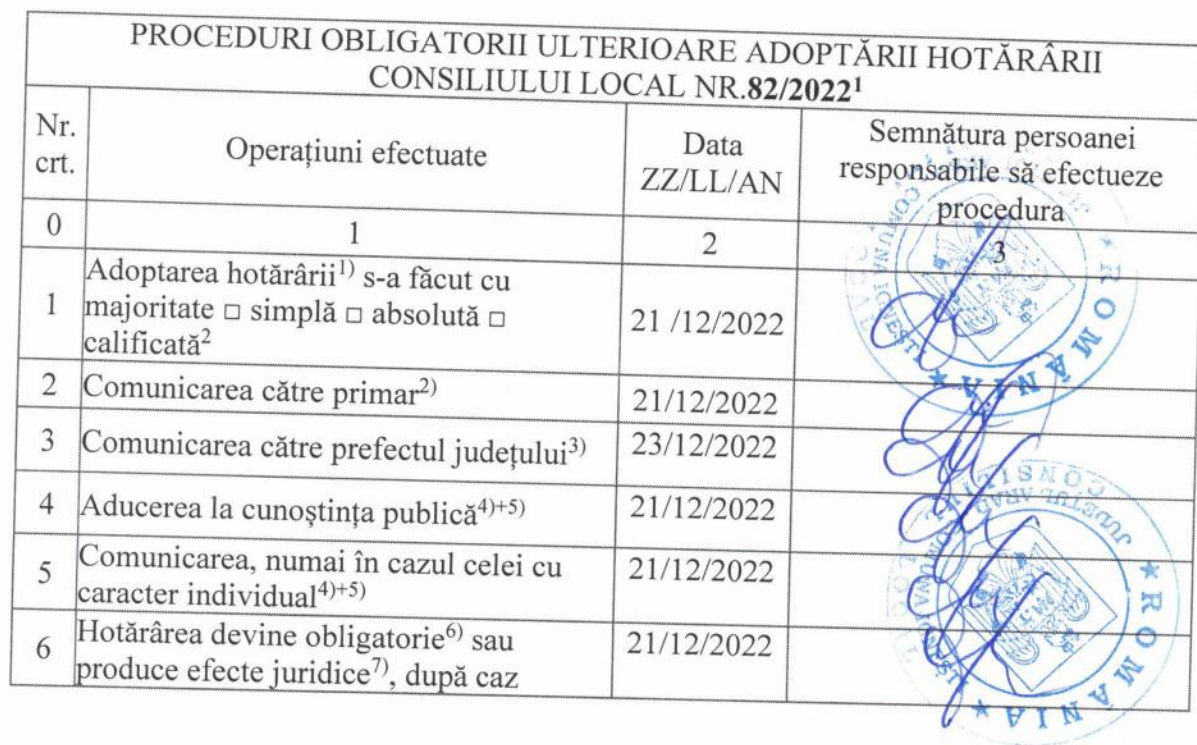 PROCEDURI OBLIGATORII ULTERIOARE ADOPTĂRII HOTĂRÂRII
CONSILIULUI LOCAL NR.82/2022¹
Nr. crt.
Operațiuni efectuate
Data
ZZ/LL/AN
Semnătura persoanei
responsabile să efectueze
procedura
0 1 2 3
1 Adoptarea hotărârii¹⁾ s-a făcut cu
majoritate □ simplă □ absolută □
calificată² 21 /12/2022
2 Comunicarea către primar²⁾ 21/12/2022
3 Comunicarea către prefectul județului³⁾ 23/12/2022
4 Aducerea la cunoștința publică⁴⁾⁺⁵⁾ 21/12/2022
5 Comunicarea, numai în cazul celei cu
caracter individual⁴⁾⁺⁵⁾ 21/12/2022
6 Hotărârea devine obligatorie⁶⁾ sau
produce efecte juridice⁷⁾, după caz 21/12/2022
★ ROMÂNIA ★
COMUNA
★ ROMÂNIA ★
JUDEȚUL ARAD
COMUNA